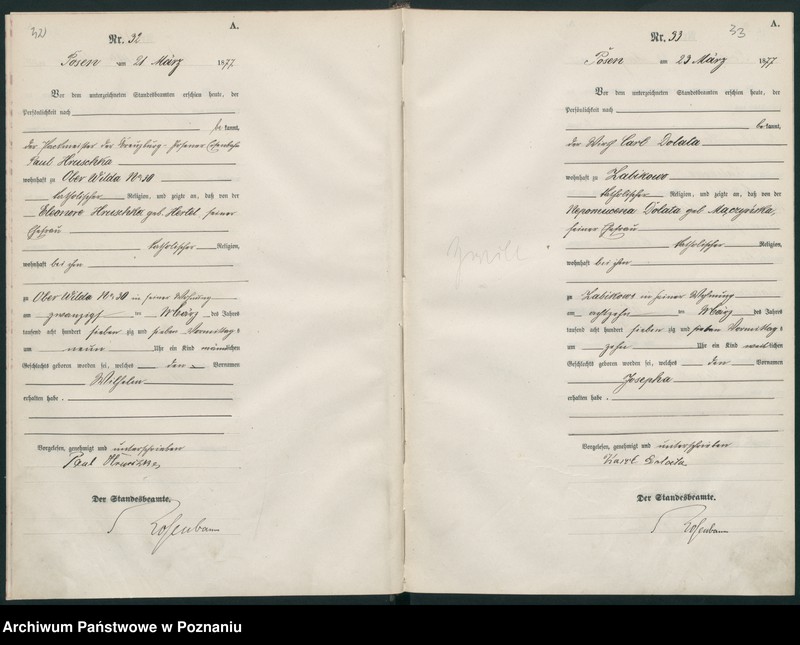 32
A.
Nr. 32
Posen am 21 März 1877
Vor dem unterzeichneten Standesbeamten erschien heute, der
Persönlichkeit nach
be kannt,
der Packmeister der Kreuzburg-Posener Eisenbahn
Paul Hruschka
wohnhaft zu Ober Wilda No 30
katholischer Religion, und zeigte an, daß von der
Eleonore Hruschka geb. Hertel, seiner
Ehefrau
katholischer Religion,
wohnhaft bei ihm
zu Ober Wilda No 30 in seiner Wohnung
am zwanzigsten März des Jahres
tausend acht hundert sieben zig und sieben Vormittags
um neun Uhr ein Kind männlichen
Geschlechts geboren worden sei, welches den Vornamen
Wilhelm
erhalten habe.
Vorgelesen, genehmigt und unterschrieben
Paul Hruschka
Der Standesbeamte.
Rosenbaum
33
A.
Nr. 33
Posen am 23 März 1877
Vor dem unterzeichneten Standesbeamten erschien heute, der
Persönlichkeit nach
be kannt,
der Wirth Carl Dolata
wohnhaft zu Zabikowo
katholischer Religion, und zeigte an, daß von der
Nepomucena Dolata geb. Mączyńska,
seiner Ehefrau
katholischer Religion,
wohnhaft bei ihm
zu Zabikowo in seiner Wohnung
am achtzehn ten März des Jahres
tausend acht hundert sieben zig und sieben Vormittags
um zehn Uhr ein Kind weiblichen
Geschlechts geboren worden sei, welches den Vornamen
Josepha
erhalten habe.
Vorgelesen, genehmigt und unterschrieben
Karl Dolata
Der Standesbeamte.
Rosenbaum
Archiwum Państwowe w Poznaniu